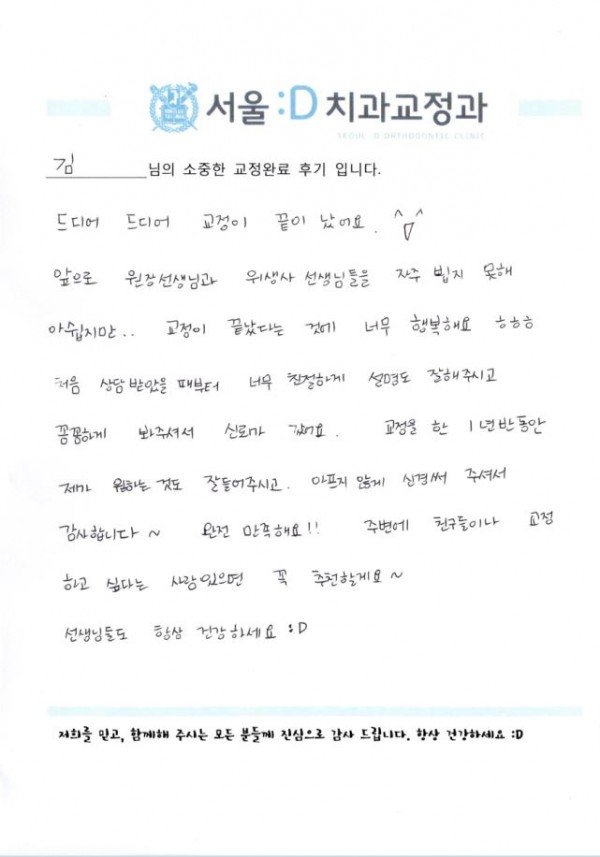 서울 :D 치과교정과
SEOUL :D ORTHODONTIC CLINIC
김 님의 소중한 교정완료 후기 입니다.
드디어 드디어 교정이 끝이 났어요.
앞으로 원장선생님과 위생사 선생님들을 자주 뵙지 못해
아쉽지만.. 교정이 끝났다는 것에 너무 행복해요 ㅎㅎㅎ
처음 상담받았을 때부터 너무 친절하게 설명도 잘해주시고
꼼꼼하게 봐주셔서 신뢰가 갔어요. 교정을 한 1년반동안
제가 원하는 것도 잘들어주시고. 아프지 않게 신경써 주셔서
감사합니다~ 완전 만족해요!! 주변에 친구들이나 교정
하고 싶다는 사람있으면 꼭 추천할게요~
선생님들도 항상 건강하세요 :D
저희를 믿고, 함께해 주시는 모든 분들께 진심으로 감사 드립니다. 항상 건강하세요 :D